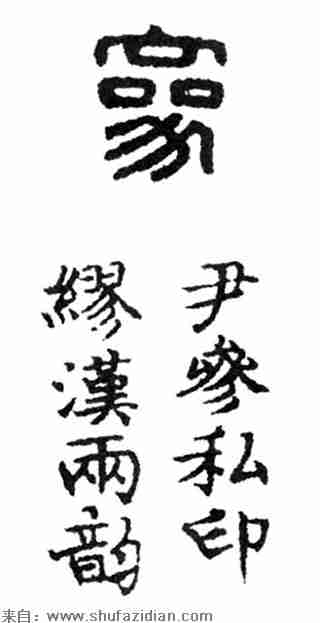 參
尹參私印
繆漢兩韵
来自：www.shufazidian.com